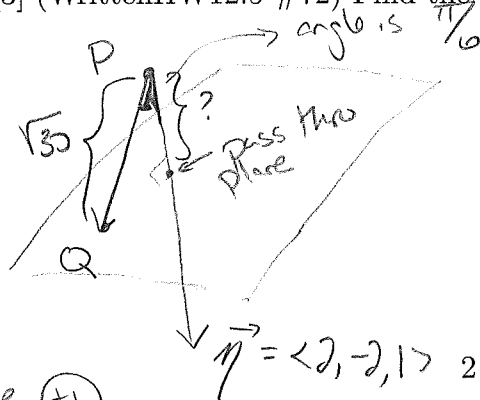 (WrittenHW12.5 #72) Find the
angle is π/6
P
√30
?
pass thro
plane
Q
n = <2, -2, 1> 2
+1